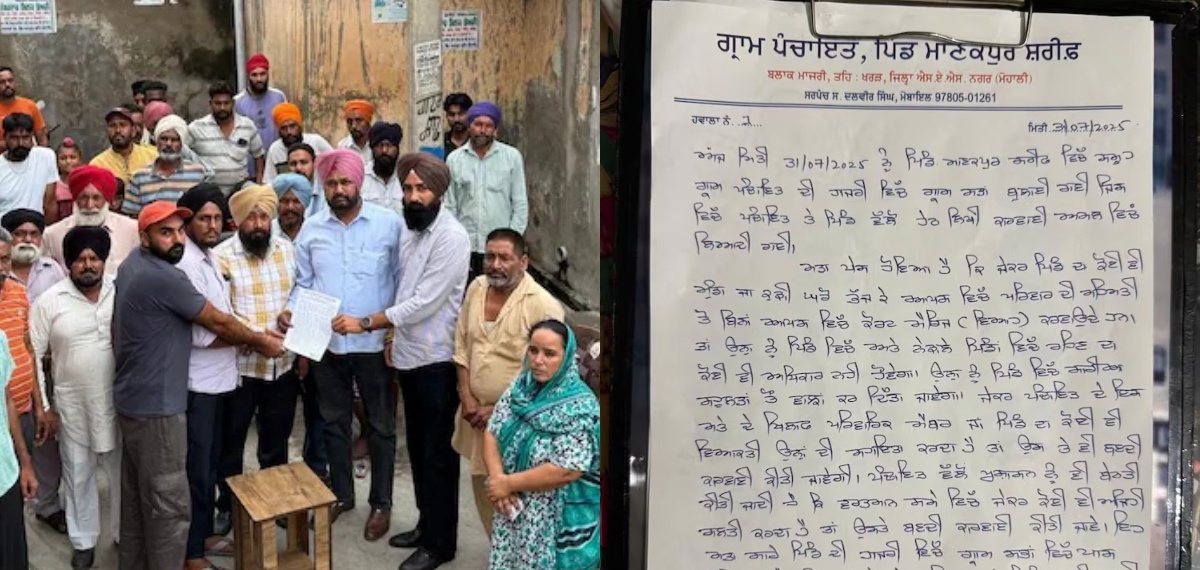 ਗ੍ਰਾਮ ਪੰਚਾਇਤ, ਪਿੰਡ ਮਾਣਕਪੁਰ ਸ਼ਰੀਫ਼
ਬਲਾਕ ਮਾਜਰੀ, ਤਹਿ : ਖਰੜ, ਜਿਲ੍ਹਾ ਐਸ.ਏ.ਐਸ. ਨਗਰ (ਮੋਹਾਲੀ)
ਸਰਪੰਚ ਸ. ਦਲਵੀਰ ਸਿੰਘ, ਮੋਬਾਇਲ 97805-01261
ਹਵਾਲਾ ਨੰ. ਮਿਤੀ 31/07/2025
ਅੱਜ ਮਿਤੀ 31/07/2025 ਨੂੰ ਪਿੰਡ ਮਾਣਕਪੁਰ ਸ਼ਰੀਫ ਵਿੱਚ ਸਮੂਹ
ਗ੍ਰਾਮ ਪੰਚਾਇਤ ਦੀ ਹਾਜਰੀ ਵਿੱਚ ਗ੍ਰਾਮ ਸਭਾ ਬੁਲਾਈ ਗਈ ਜਿਸ
ਵਿੱਚ ਪੰਚਾਇਤ ਤੇ ਪਿੰਡ ਵੱਲੋਂ ਹੇਠ ਲਿਖੀ ਕਾਰਵਾਈ ਅਮਲ ਵਿੱਚ
ਲਿਆਂਦੀ ਗਈ।
ਮਤਾ ਪੇਸ਼ ਹੋਇਆ ਹੈ ਕਿ ਜੇਕਰ ਪਿੰਡ ਦਾ ਕੋਈ ਵੀ
ਮੁੰਡਾ ਜਾਂ ਕੁੜੀ ਘਰੋਂ ਭੱਜ ਕੇ ਆਪਸ ਵਿੱਚ ਪਰਿਵਾਰ ਦੀ ਸਹਿਮਤੀ
ਤੋਂ ਬਿਨਾਂ ਆਪਸ ਵਿੱਚ ਕੋਰਟ ਮੈਰਿਜ (ਵਿਆਹ) ਕਰਵਾਉਂਦੇ ਹਨ।
ਤਾਂ ਉਨ੍ਹਾਂ ਨੂੰ ਪਿੰਡ ਵਿੱਚ ਅਤੇ ਨੇੜਲੇ ਪਿੰਡਾਂ ਵਿੱਚ ਰਹਿਣ ਦਾ
ਕੋਈ ਵੀ ਅਧਿਕਾਰ ਨਹੀਂ ਹੋਵੇਗਾ। ਉਨ੍ਹਾਂ ਨੂੰ ਪਿੰਡ ਵਿੱਚ
ਤੋਂ ਵਾਂਝਾ ਕਰ ਦਿੱਤਾ ਜਾਵੇਗਾ। ਜੇਕਰ ਪੰਚਾਇਤ ਦੇ ਇਸ
ਮਤੇ ਦੇ ਖਿਲਾਫ ਪਰਿਵਾਰਿਕ ਮੈਂਬਰ ਜਾਂ ਪਿੰਡ ਦਾ ਕੋਈ ਵੀ
ਵਿਅਕਤੀ ਉਨ੍ਹਾਂ ਦੀ ਸਹਾਇਤਾ ਕਰਦਾ ਹੈ ਤਾਂ ਉਸ ਤੇ ਵੀ ਬਣਦੀ
ਕਾਰਵਾਈ ਕੀਤੀ ਜਾਵੇਗੀ। ਪੰਚਾਇਤ ਵੱਲੋਂ ਪ੍ਰਸ਼ਾਸਨ ਨੂੰ ਵੀ ਬੇਨਤੀ
ਕੀਤੀ ਜਾਂਦੀ ਹੈ ਕਿ ਵਰਤਮਾਨ ਸਮੇਂ ਵਿੱਚ ਜੇਕਰ ਕੋਈ ਵੀ ਅਜਿਹੀ
ਗਲਤੀ ਕਰਦਾ ਹੈ ਤਾਂ ਉਸਤੇ ਬਣਦੀ ਕਾਰਵਾਈ ਕੀਤੀ ਜਾਵੇ। ਇਹ
ਮਤਾ ਸਾਰੇ ਪਿੰਡ ਦੀ ਹਾਜਰੀ ਵਿੱਚ ਗ੍ਰਾਮ ਸਭਾ ਵਿੱਚ ਪਾਸ